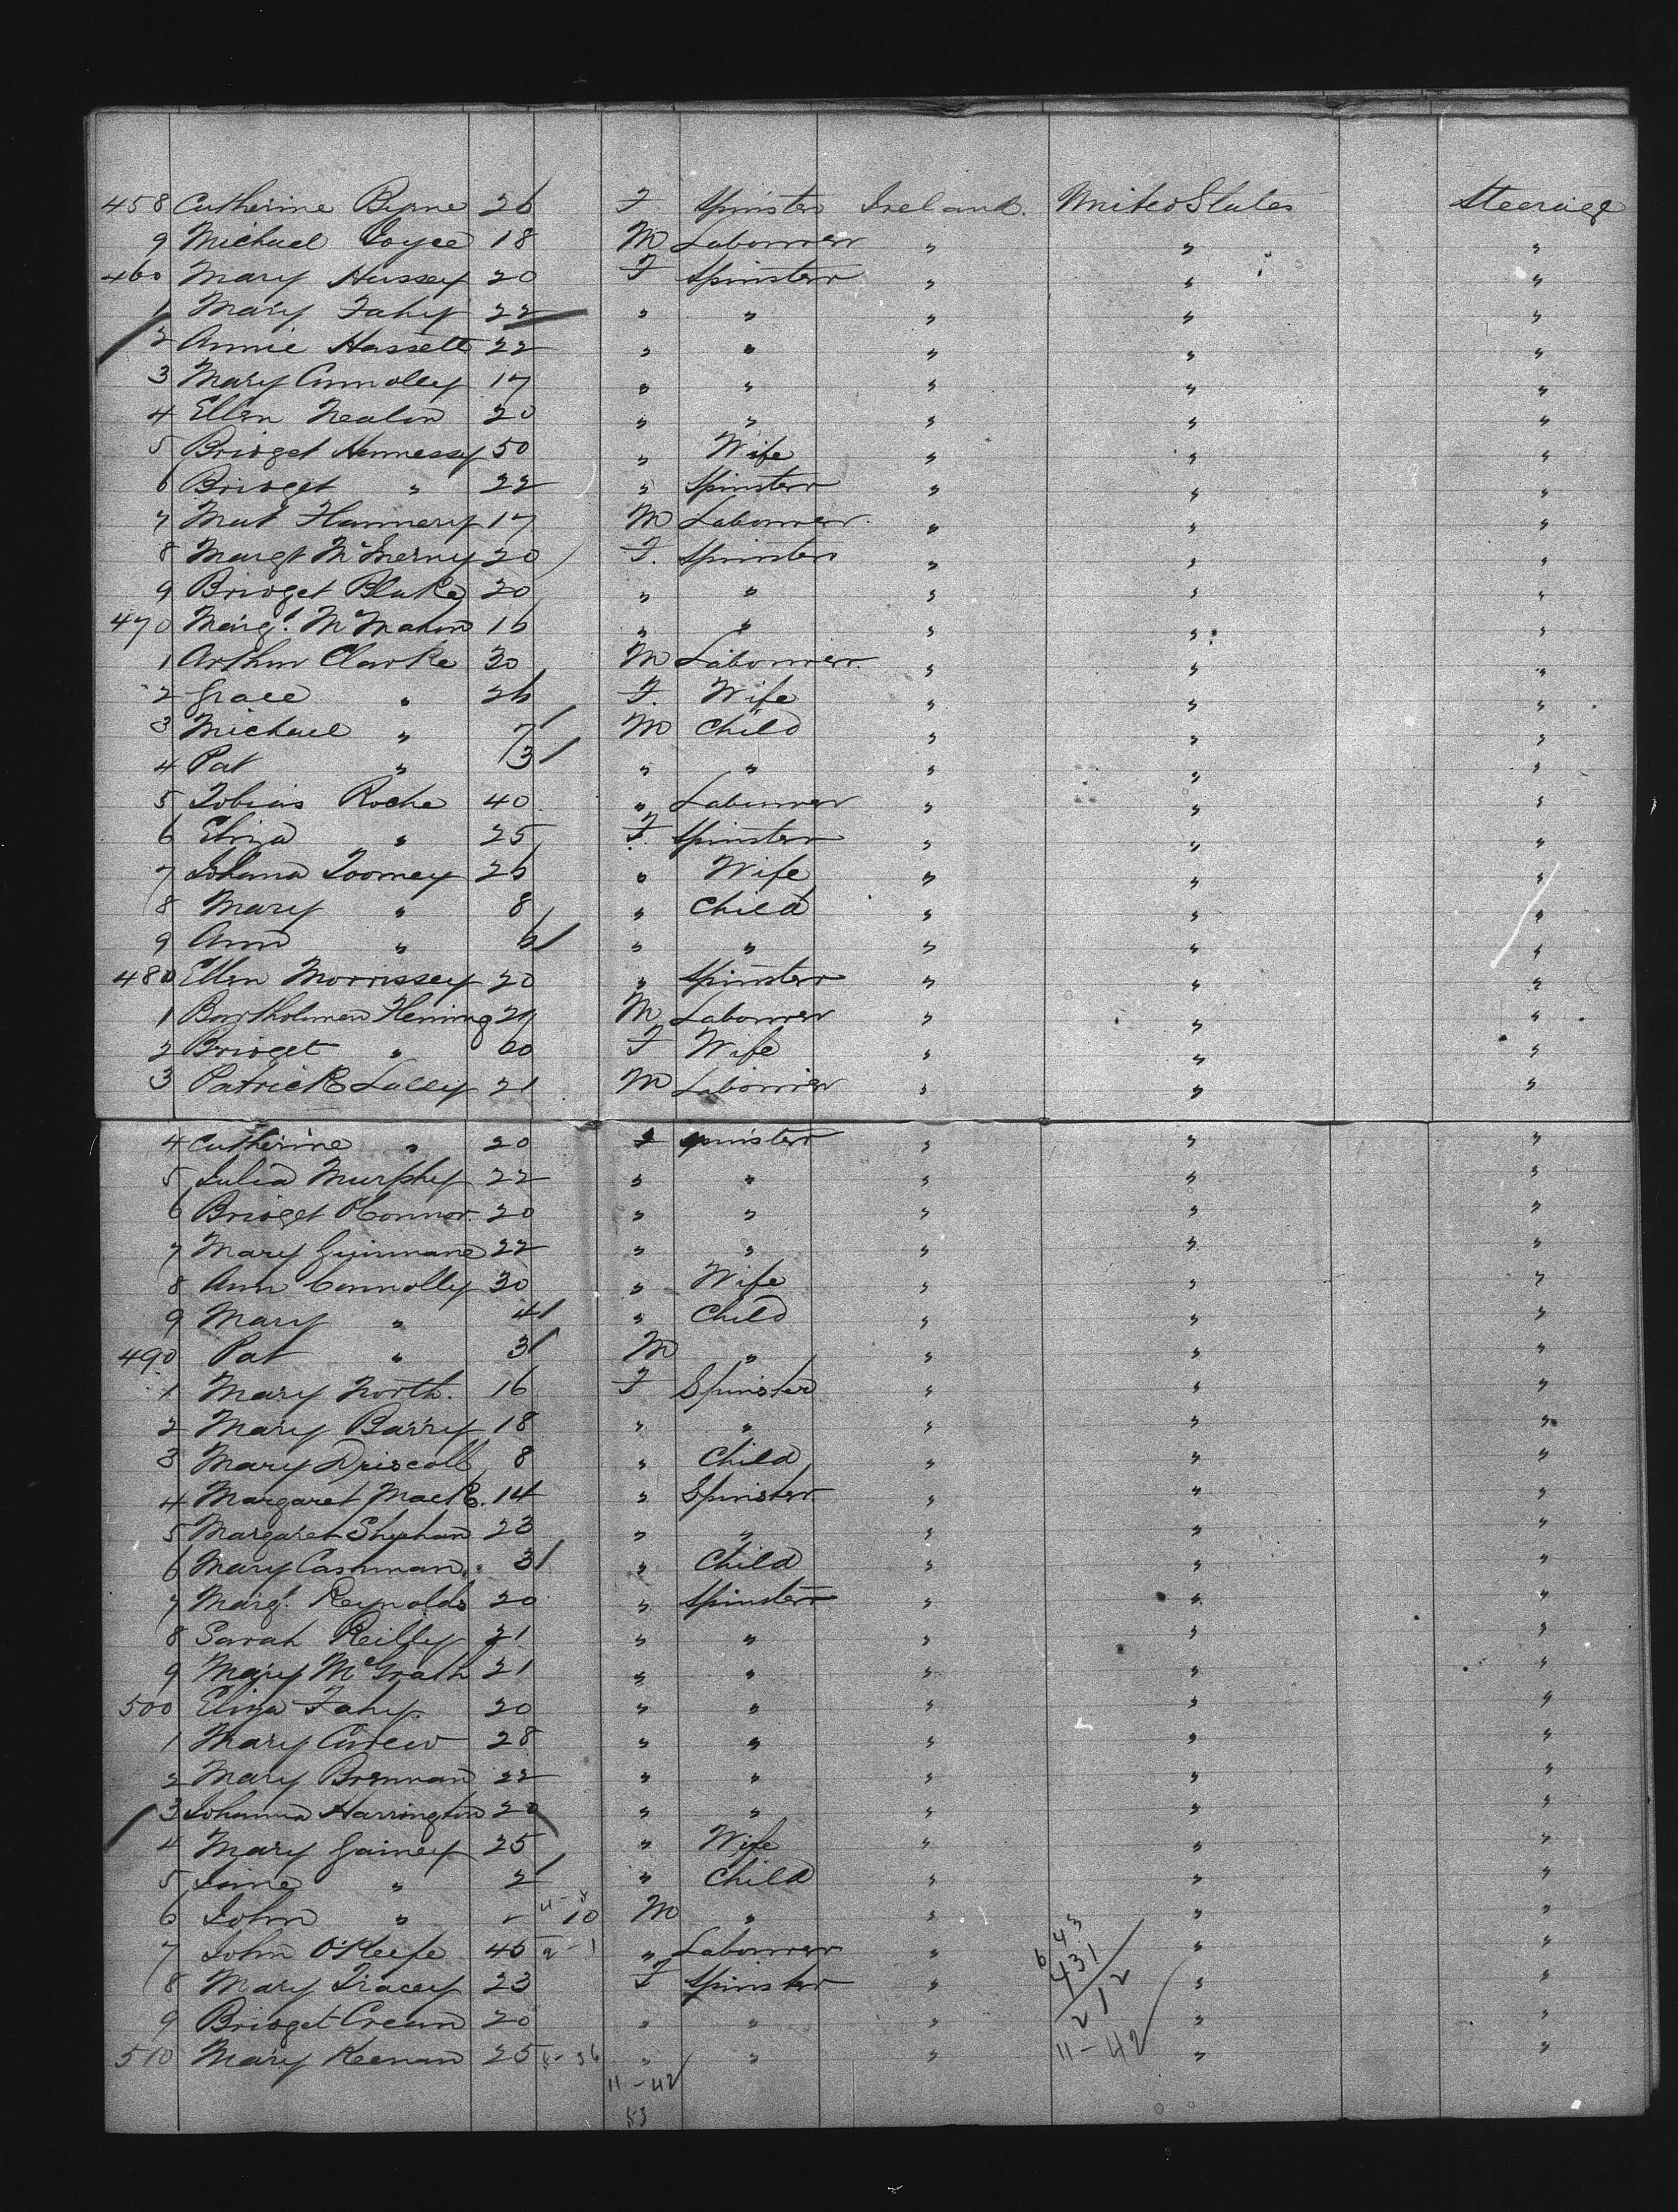 458 Catherine Byrne 26 F. Spinster Ireland. United States Steerage
9 Michael Joyce 18 M Labourer " " "
460 Mary Hussey 20 F Spinster " " "
1 Mary Fahy 22 " " " " "
2 Annie Hassett 22 " " " " "
3 Mary Connolley 17 " " " " "
4 Ellen Nealon 20 " " " " "
5 Bridget Hennessy 50 " Wife " " "
6 Bridget " 22 " Spinster " " "
7 Mat Flannery 17 M Labourer " " "
8 Margt McInerny 20 F. Spinster " " "
9 Bridget Blake 20 " " " " "
470 Margt. McMahon 16 " " " " "
1 Arthur Clarke 30 M Labourer " " "
2 Grace " 26 F. Wife " " "
3 Michael " 7 M Child " " "
4 Pat " 3 " " " " "
5 Tobias Roche 40 " Labourer " " "
6 Eliza " 25 F. Spinster " " "
7 Johana Toomey 26 " Wife " " "
8 Mary " 8 " Child " " "
9 Ann " 6 " " " " "
480 Ellen Morrissey 20 " Spinster " " "
1 Bartholomew Fleming 29 M Labourer " " "
2 Bridget " 20 F Wife " " "
3 Patrick Lally 21 M Labourer " " "
4 Catherine " 20 F Spinster " " "
5 Julia Murphy 22 " " " " "
6 Bridget O'Connor 20 " " " " "
7 Mary Guinnane 22 " " " " "
8 Ann Connolly 30 " Wife " " "
9 Mary " 4 " Child " " "
490 Pat " 3 M " " " "
1 Mary North. 16 F Spinster " " "
2 Mary Barry 18 " " " " "
3 Mary Driscoll 8 " Child " " "
4 Margaret Mack. 14 " Spinster " " "
5 Margaret Shephan 23 " " " " "
6 Mary Cashman 3 " Child " " "
7 Margt. Reynolds 20 " Spinster " " "
8 Sarah Reilly 21 " " " " "
9 Mary McGrath 21 " " " " "
500 Eliza Fahy. 20 " " " " "
1 Mary Carew 28 " " " " "
2 Mary Brennan 22 " " " " "
3 Johanna Harrington 20 " " " " "
4 Mary Gainey 25 " Wife " " "
5 Jane " 2 " Child " " "
6 John " 10 M " " " "
7 John O'Keefe 45 " Labourer " " "
8 Mary Tracey 23 F Spinster " " "
9 Bridget Crean 20 " " " " "
510 Mary Keenan 25 " " " " "
43
6 431
212
11-42
11-42
53